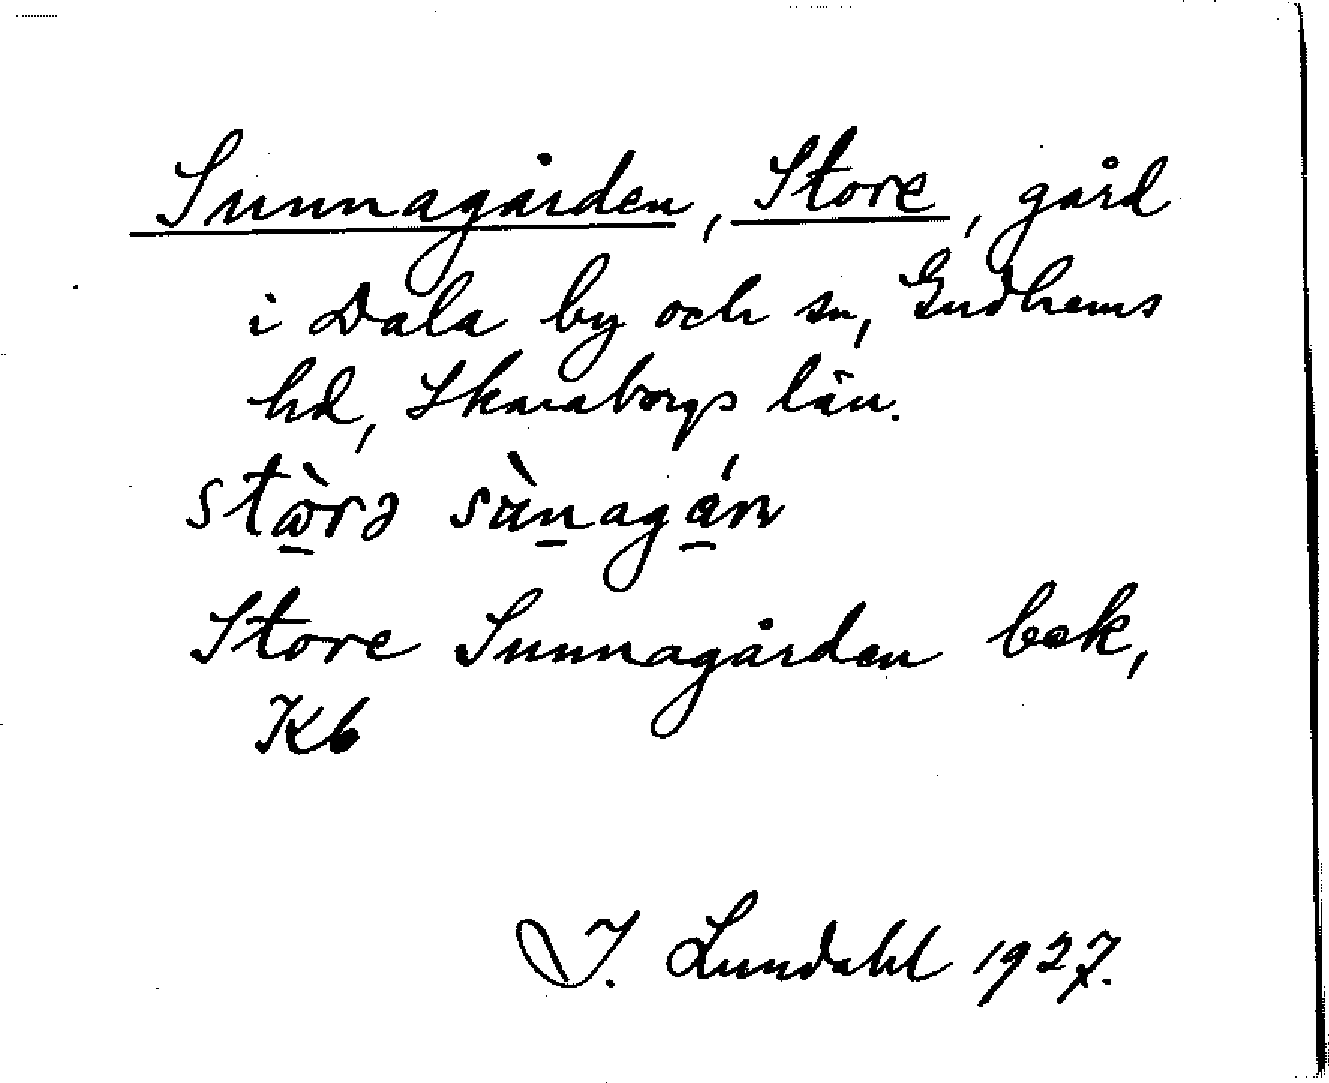 Sunnagården, Store, gård
i Dala by och sn, Gudhems
hd, Skaraborgs län.
stὼ̱rə sὰṉagá̱n
Store Sunnagården bek,
Kb
I. Lundahl 1927.